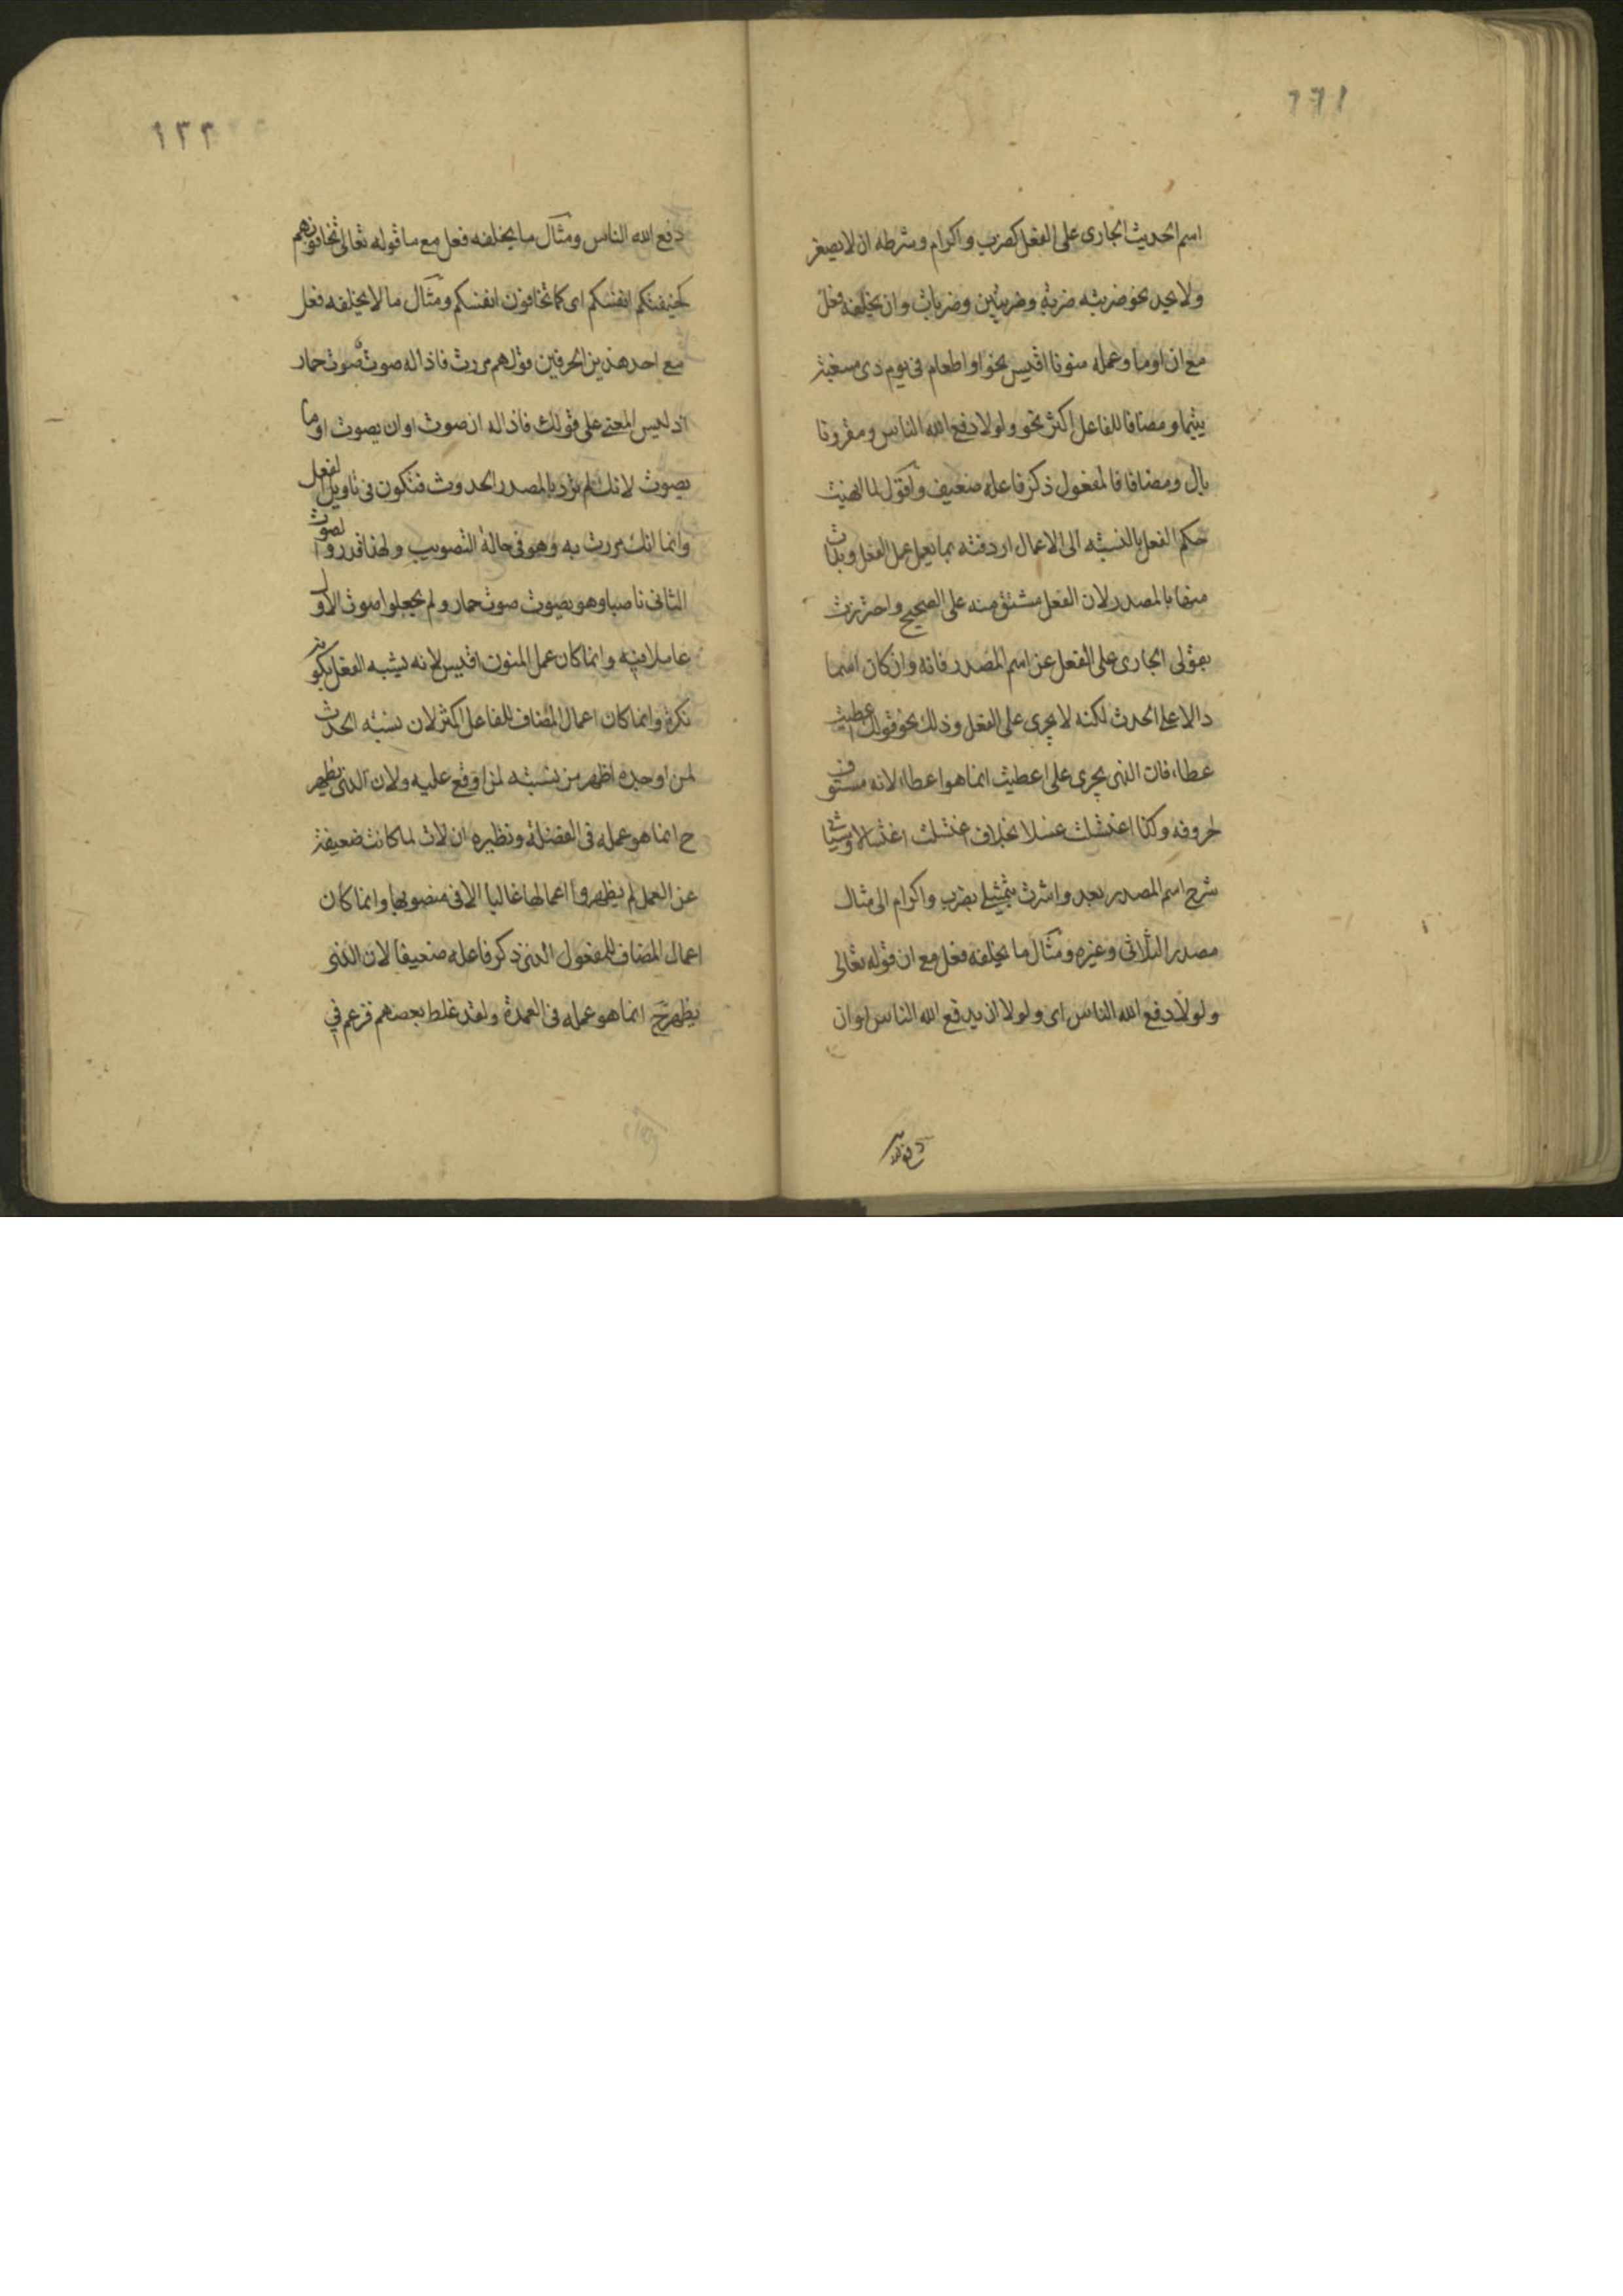 ١٣١
اسم الحديث الجارى على الفعل كضرب واكرام وشرطه ان لا يصغر
ولا يحد نحو ضربته ضربة وضربتين وضربات وان يخلفه فعل
مع ان او ما وعمله منونا اقيس نحو او اطعام فى يوم ذى مسغبة
يتيما ومضافا للفاعل اكثر نحو ولولا دفع الله الناس ومقرونا
بال ومضافا فالمفعول ذكر فاعله ضعيف واقول لما انهيت
حكم الفعل بالنسبة الى الاعمال اردفته بما يعمل عمل الفعل وبدات
منها بالمصدر لان الفعل مشتق منه على الصحيح واحترزت
بقولى الجارى على الفعل عن اسم المصدر فانه وان كان اسما
دالا على الحدث لكنه لا يجرى على الفعل وذلك نحو قولك اعطيت
عطاء فان الذى يجرى على اعطيت انما هو اعطاء لانه مستوف
لحروفه وكذا اغتسلت غسلا بخلاف اغتسلت اغتسالا وسياتى
شرح اسم المصدر بعد واشرت بتمثيلى بضرب واكرام الى مثال
مصدر الثلاثى وغيره ومثال ما يخلفه فعل مع ان قوله تعالى
ولولا دفع الله الناس اى ولولا ان يدفع الله الناس او ان
دفع الله
١٣٢
دفع الله الناس ومثال ما يخلفه فعل مع ما قوله تعالى تخافونهم
كخيفتكم انفسكم اى كما تخافون انفسكم ومثال ما لا يخلفه فعل
مع احد هذين الحرفين قولهم مررت فاذا له صوت صوت حمار
اذ ليس المعنى على قولك فاذا له ان صوت او ان يصوت او ما
يصوت لانك لم ترد بالمصدر الحدوث فتكون فى تاويل الفعل
وانما انك مررت به وهو فى حالة التصويب ولهذا قدروا لصوت
الثانى ناصبا وهو يصوت صوت حمار ولم يجعلوا صوت الاول
عاملا فيه وانما كان عمل المنون اقيس لانه يشبه الفعل بكونه
نكرة وانما كان اعمال المضاف للفاعل اكثر لان نسبة الحدث
لمن اوجده اظهر من نسبته لمن اوقع عليه ولان الذى يظهر
ح انما هو عمله فى الفضلة ونظيره ان لات لما كانت ضعيفة
عن العمل لم يظهروا اعمالها غالبا الا فى منصوبها وانما كان
اعمال المضاف للمفعول الذى ذكر فاعله ضعيفا لان الذى
يظهر ح انما هو عمله فى العمدة ولقد غلط بعضهم فزعم فى